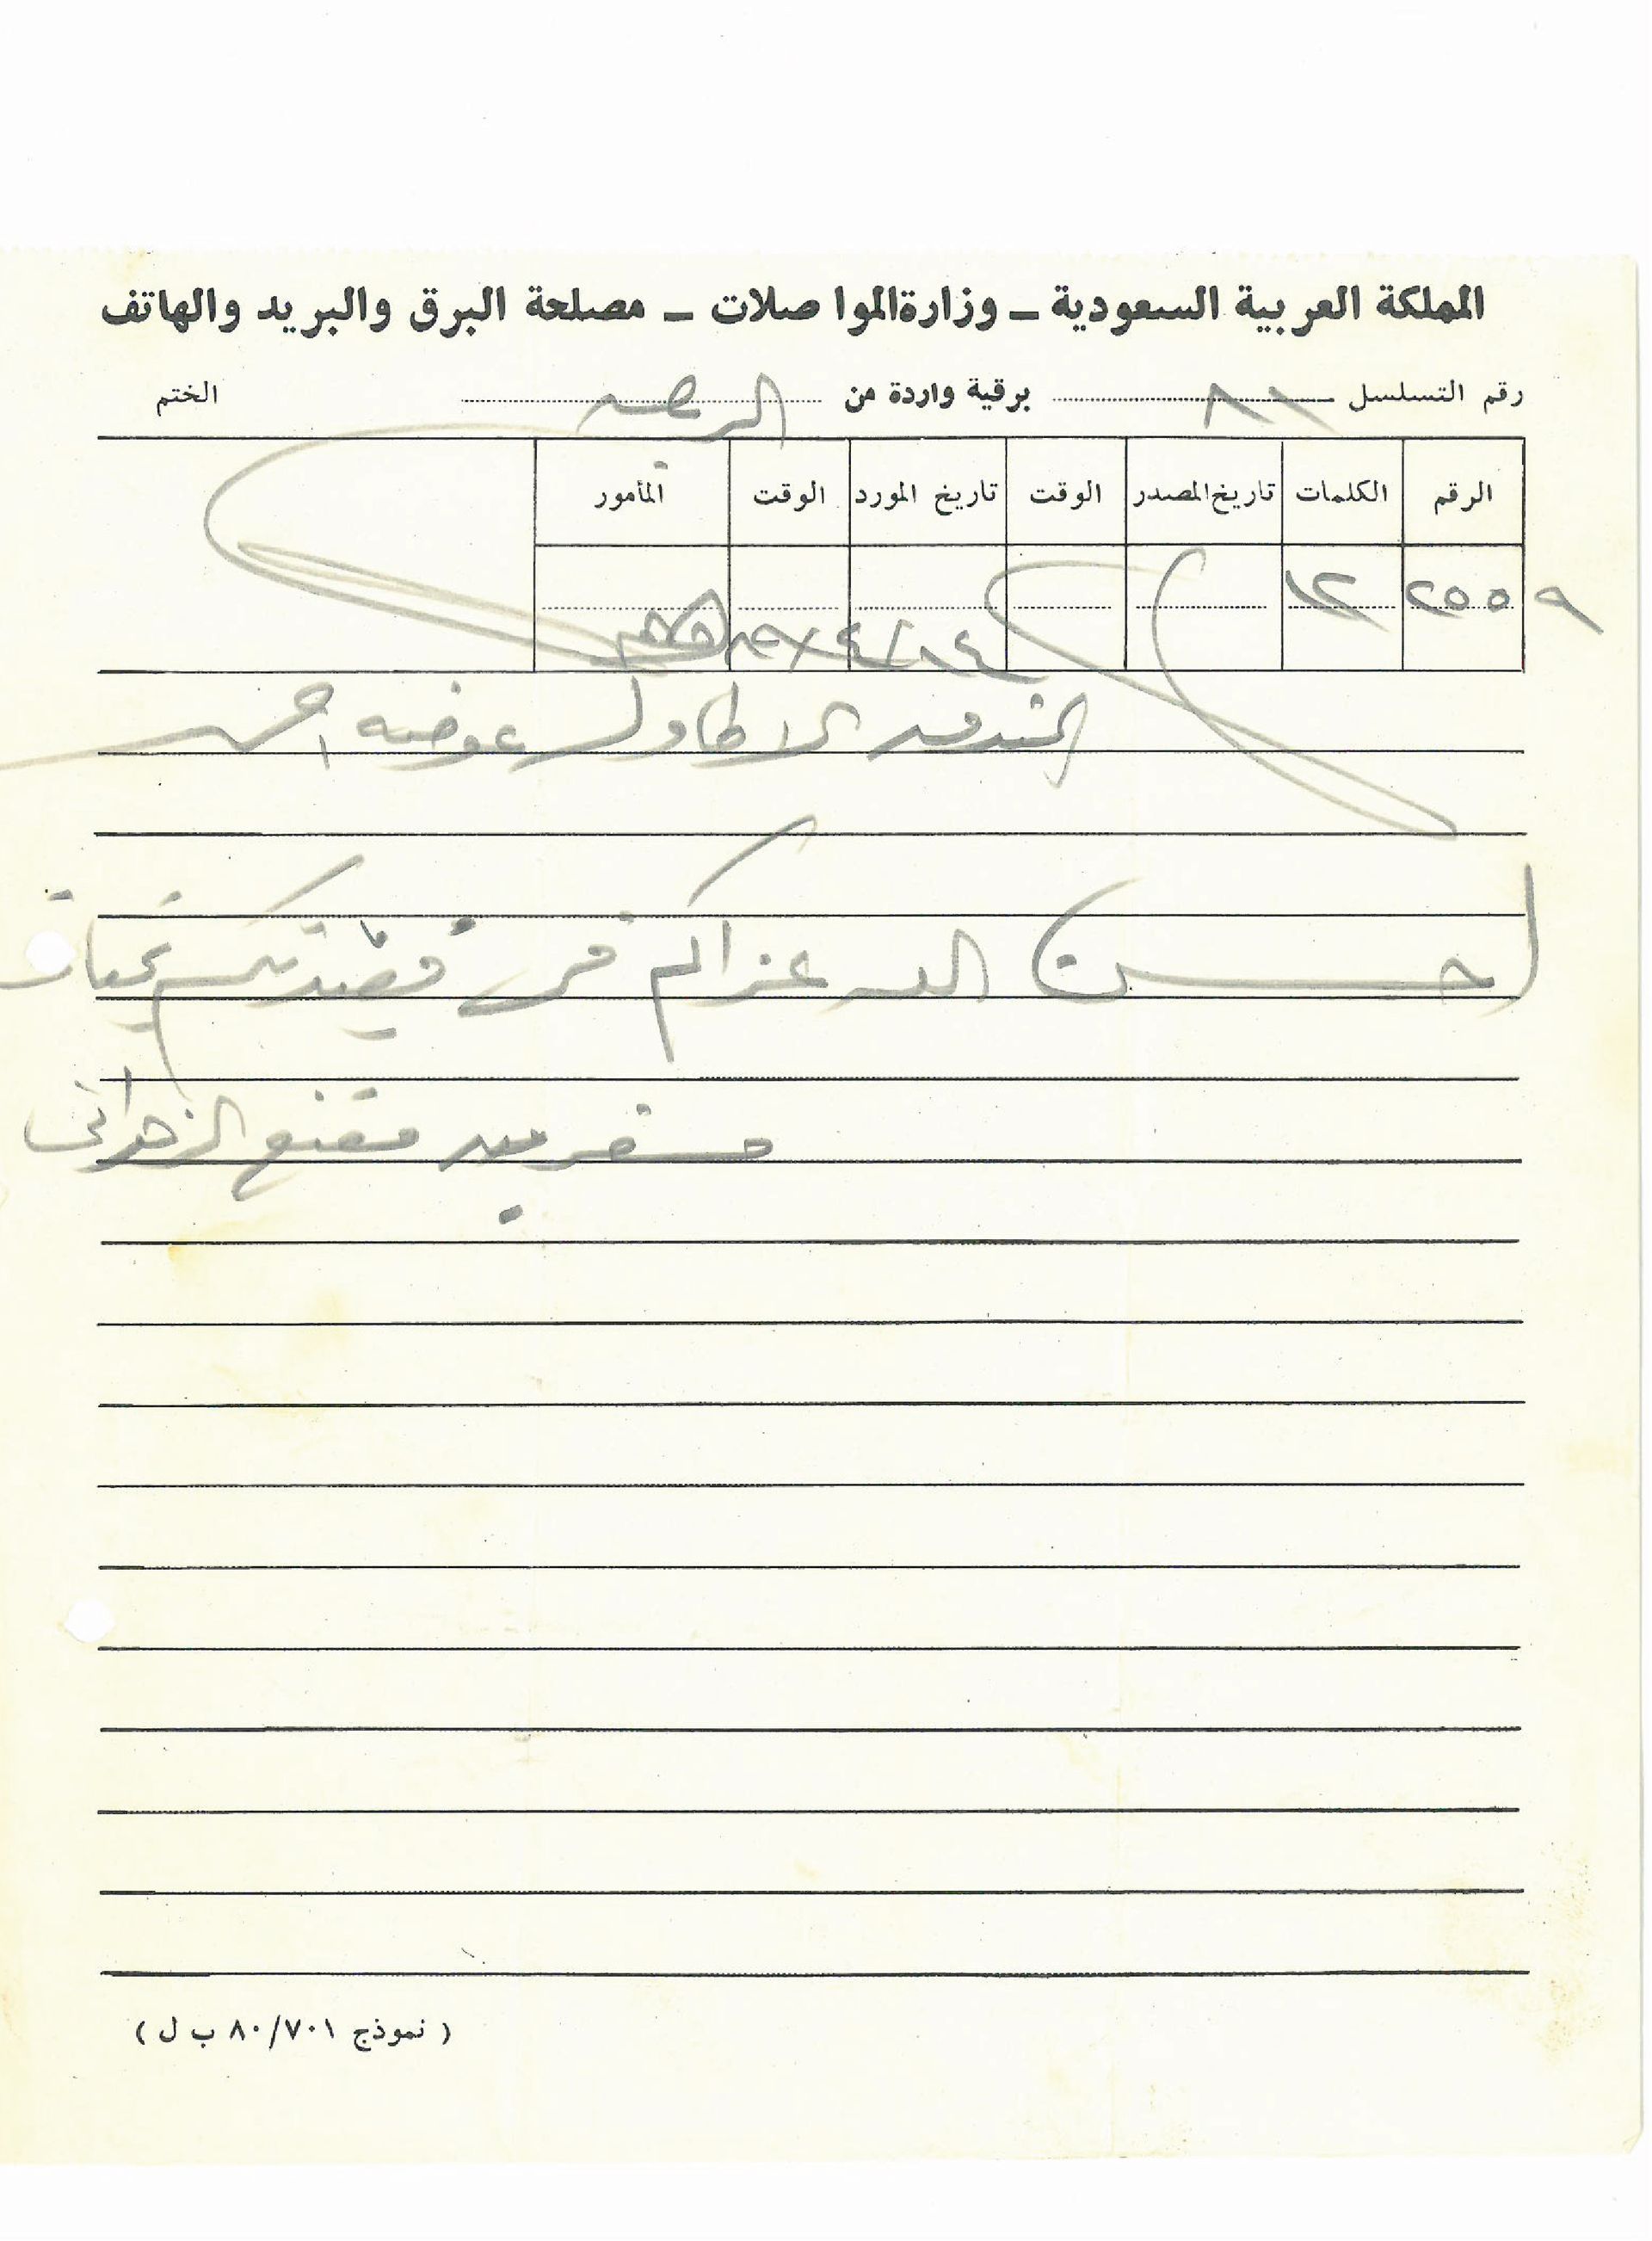 المملكة العربية السعودية ــ وزارة الموا صلات ــ مصلحة البرق والبريد والهاتف
رقم التسلسل ٨١ برقية واردة من الختم
الرقم الكلمات تاريخ المصدر الوقت تاريخ المورد الوقت المأمور
٢٥٥٩ ١٢
المندق الاطاوله عوضه احمد
احسن الله عزاكم في فقيدتكم تحيات
مسفر مقنع الزهراني
( نموذج ٨٠/٧٠١ ب ل )